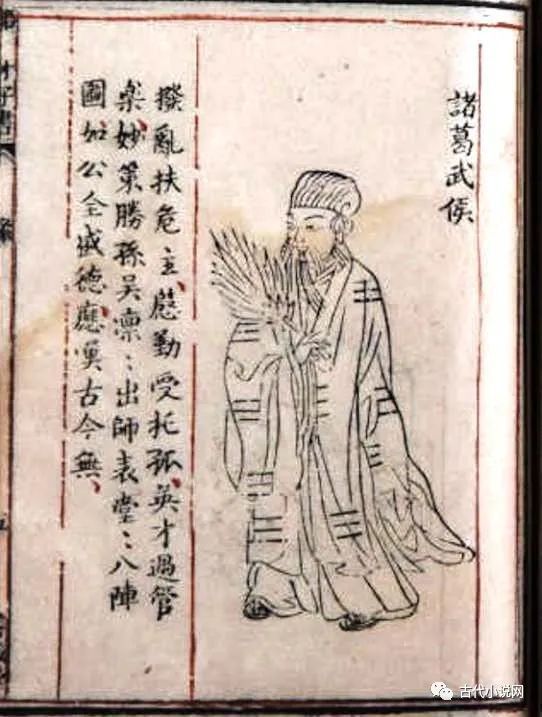 諸葛武侯
撥亂扶危主、慇勤受托孤、英才過管
樂、妙策勝孫吳、凛〻出師表堂〻八陣
圖、如公全盛德、應嘆古今無、
古代小说网